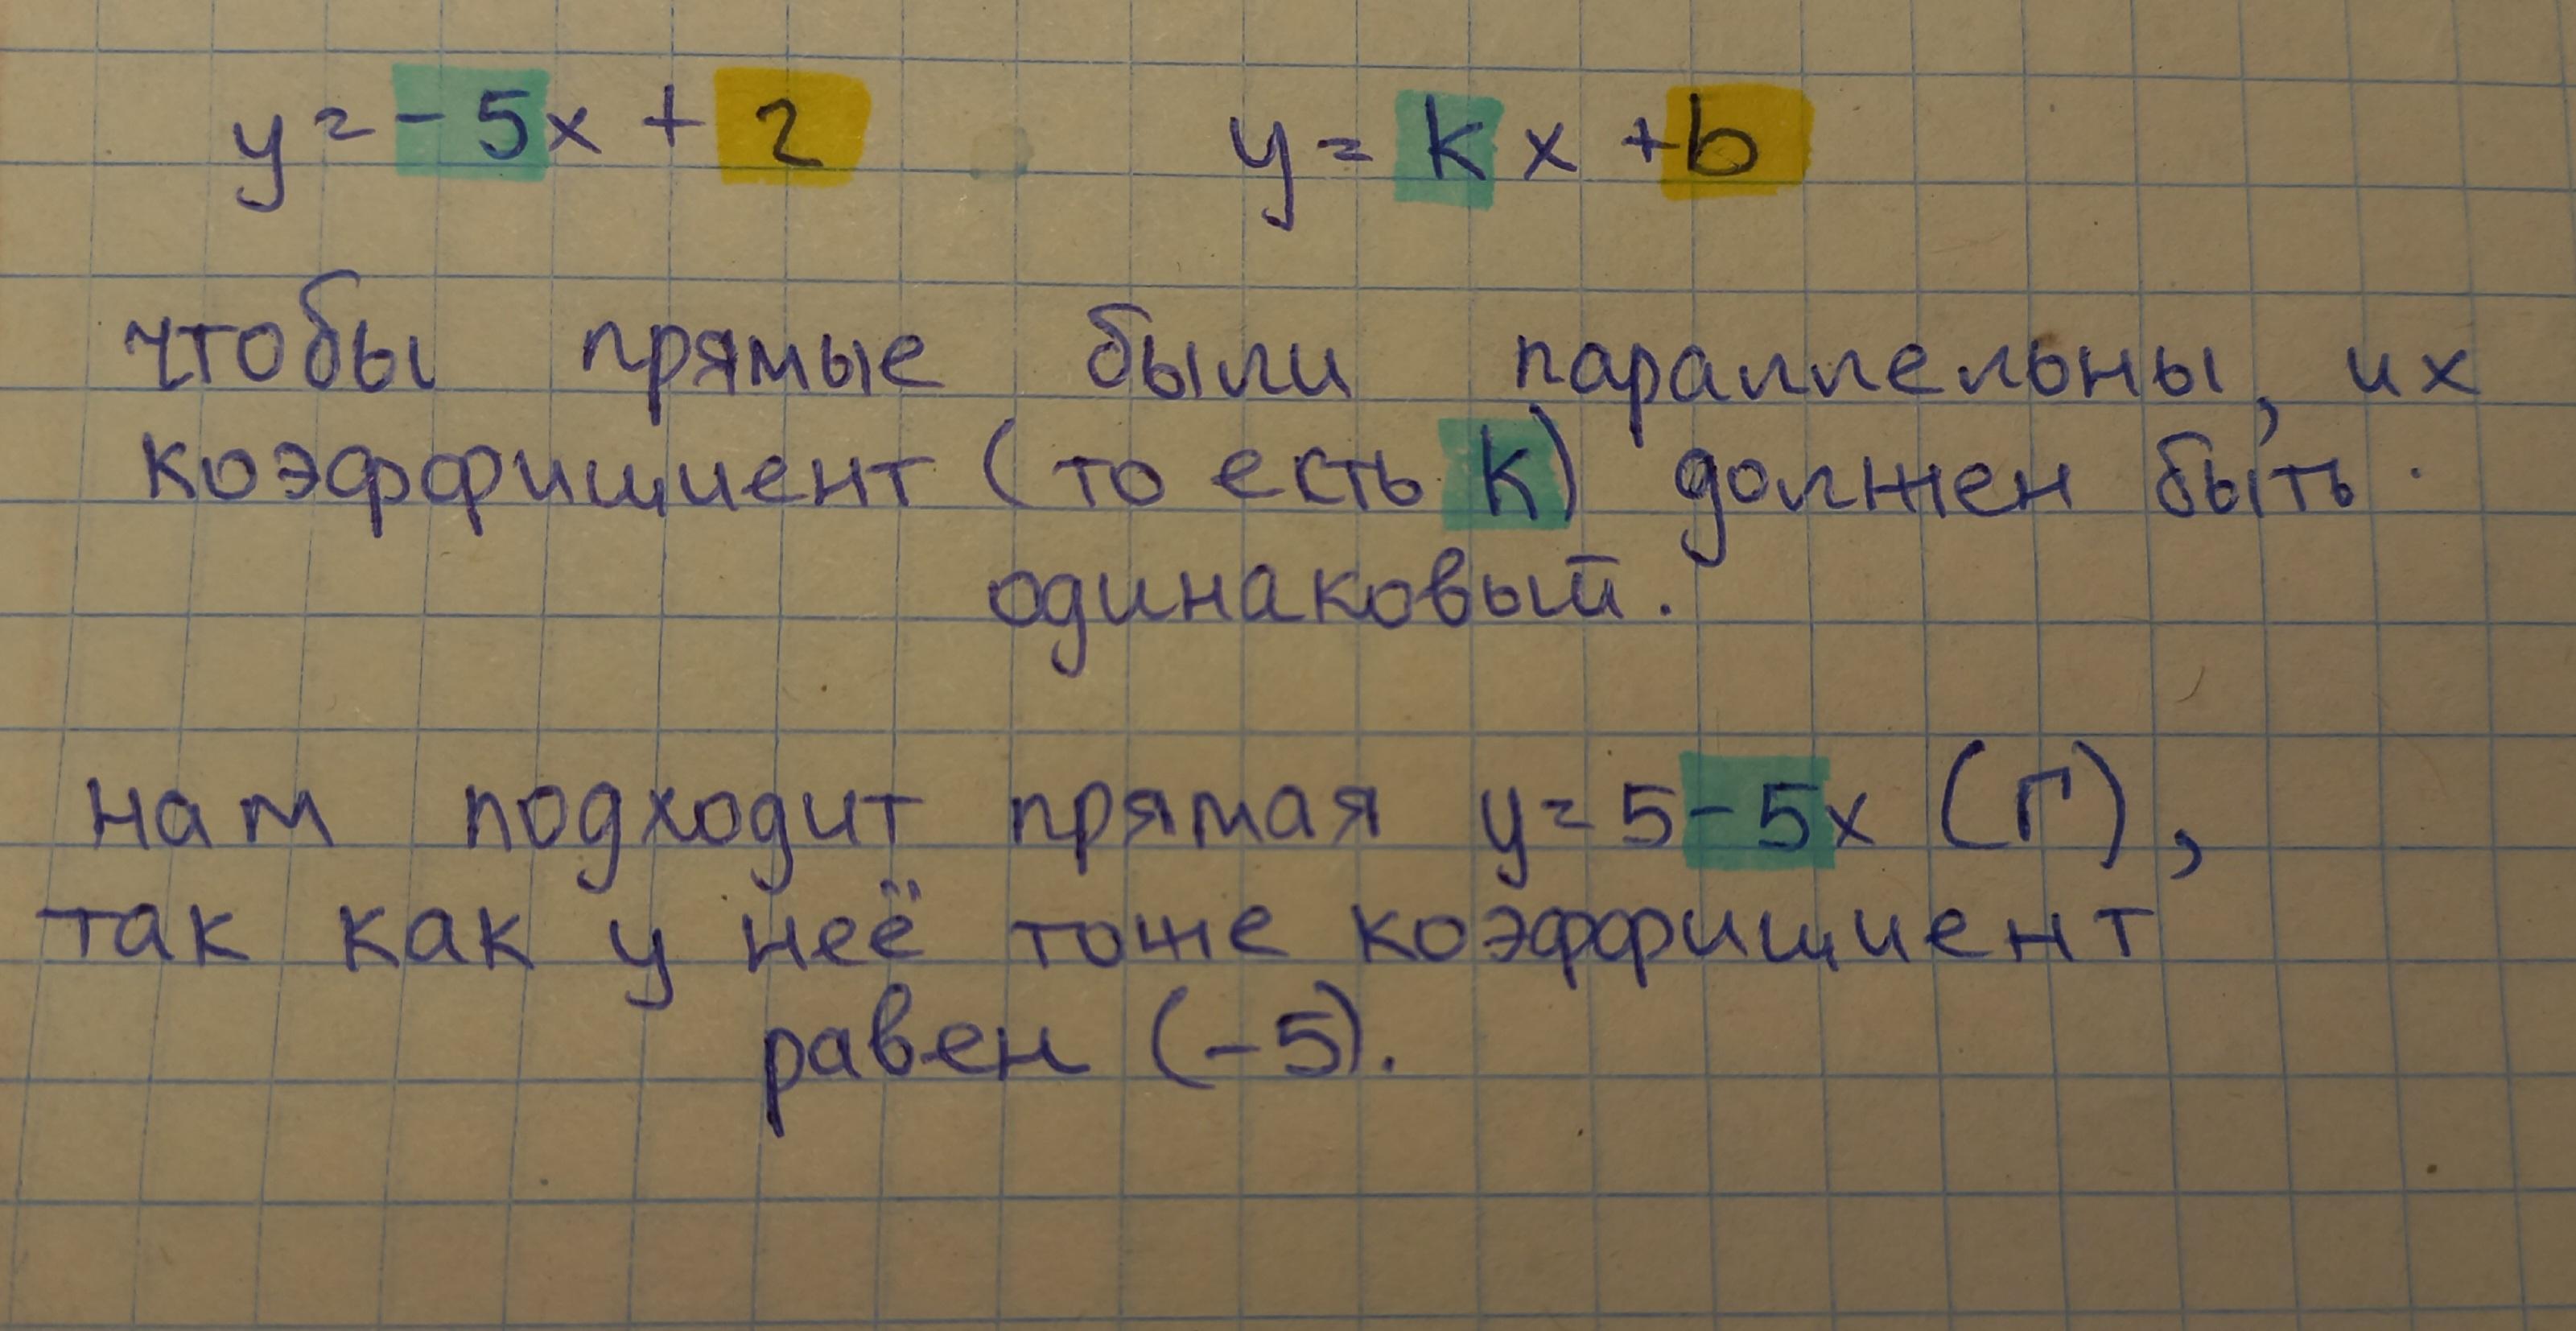 y = -5x + 2
y = kx + b
чтобы прямые были параллельны, их
коэффициент (то есть k) должен быть
одинаковый.
нам подходит прямая y = 5 - 5x (Г),
так как у неё тоже коэффициент
равен (-5).